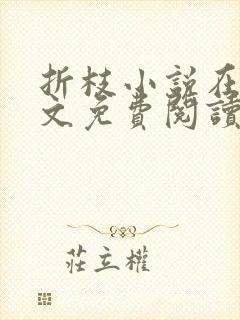 折枝小说在
文免費閱讀
莊立權